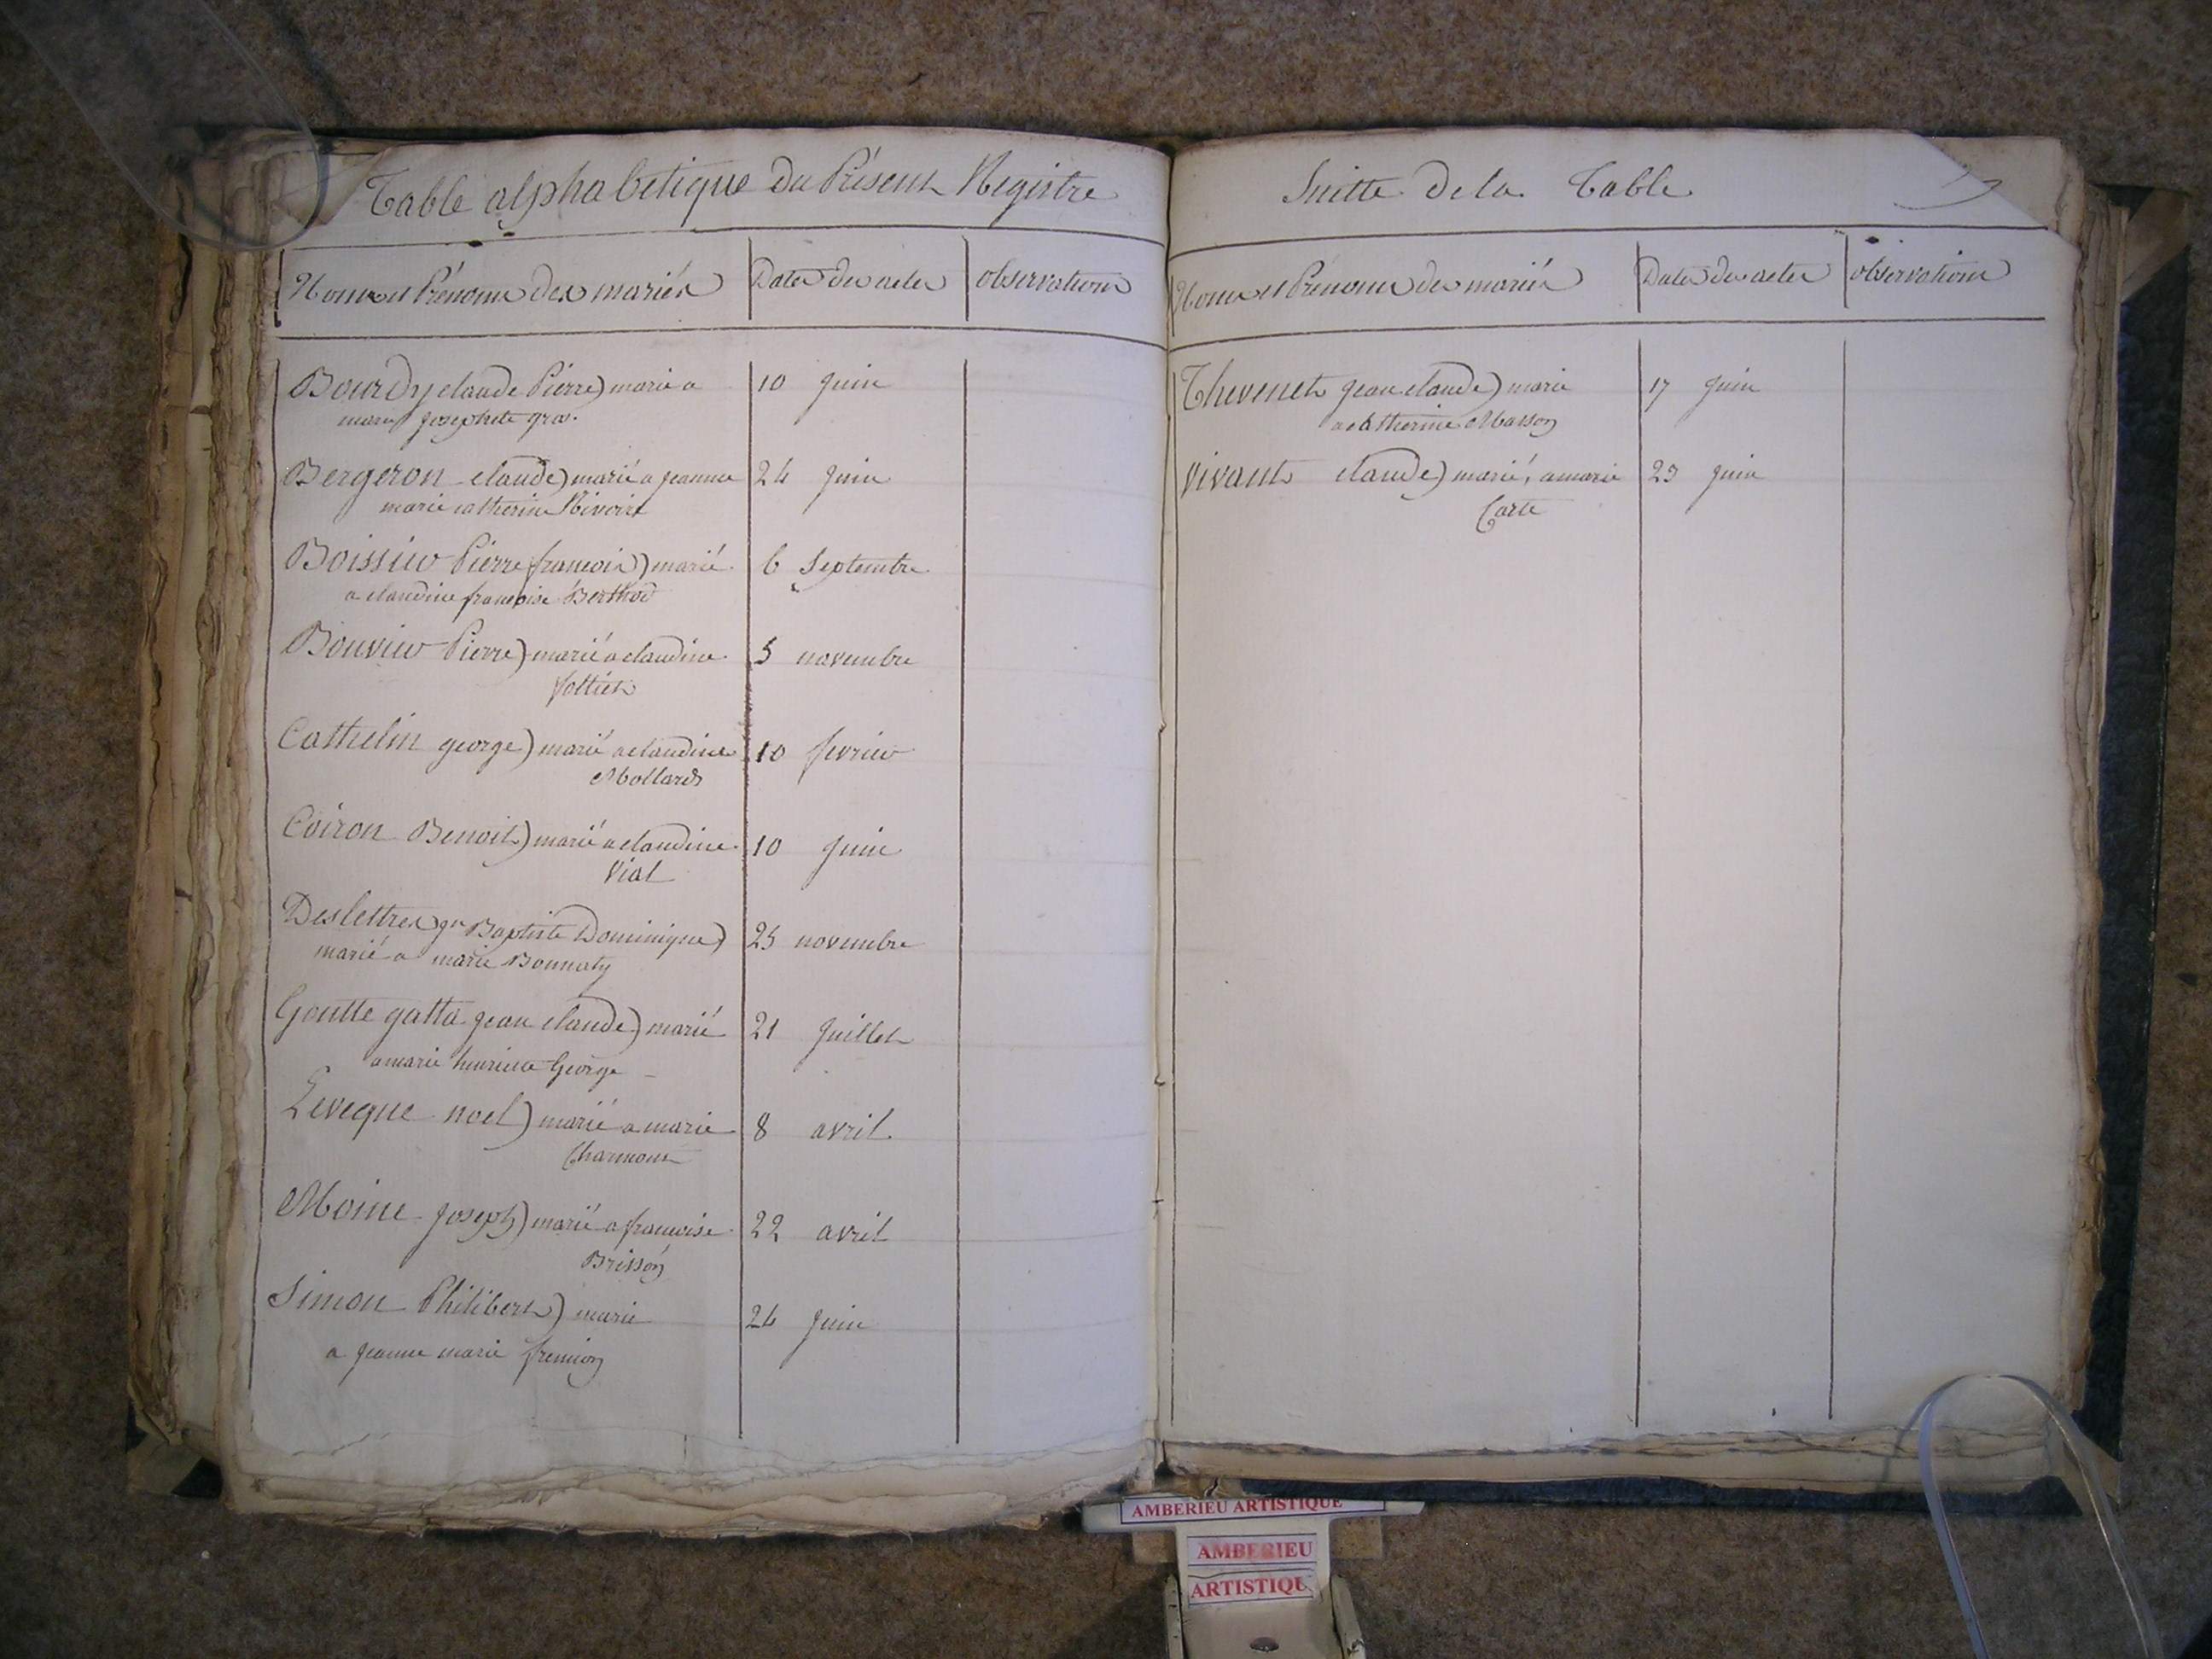 Table alphabetique du Présent Registre
Noms et Prénoms des mariés
Dates des actes
observations
Bourdy claude Pierre) marié a
10 juin
marie josephete gros.
Bergeron claude) marié a jeanne
24 juin
marie catherine Rivoire
Boissieu Pierre françois) marié
6 Septembre
a claudine françoise Berthod
Bouvier Pierre) marié a claudine
5 novembre
Cathelin george) marié a claudine
10 fevrier
Mollard
Coiron Benoit) marié a claudine
10 juin
Vial
Deslettres jn Baptiste Dominique)
25 novembre
marié a marie Bonnaty
Goutte gatta jean claude) marié
21 juillet
a marie henriette George
Leveque noel) marié a marie
8 avril
Charmont
Moine joseph) marié a françoise
22 avril
Brisson
Simon Philibert) marié
24 juin
a jeanne marie fremion
Suitte de la Table
Noms et Prénoms des mariés
Dates des actes
observations
Thevenet jean claude) marié
17 juin
a catherine Masson
Vivant claude) marié, a marie
23 juin
Carte
AMBERIEU ARTISTIQUE
AMBERIEU
ARTISTIQU